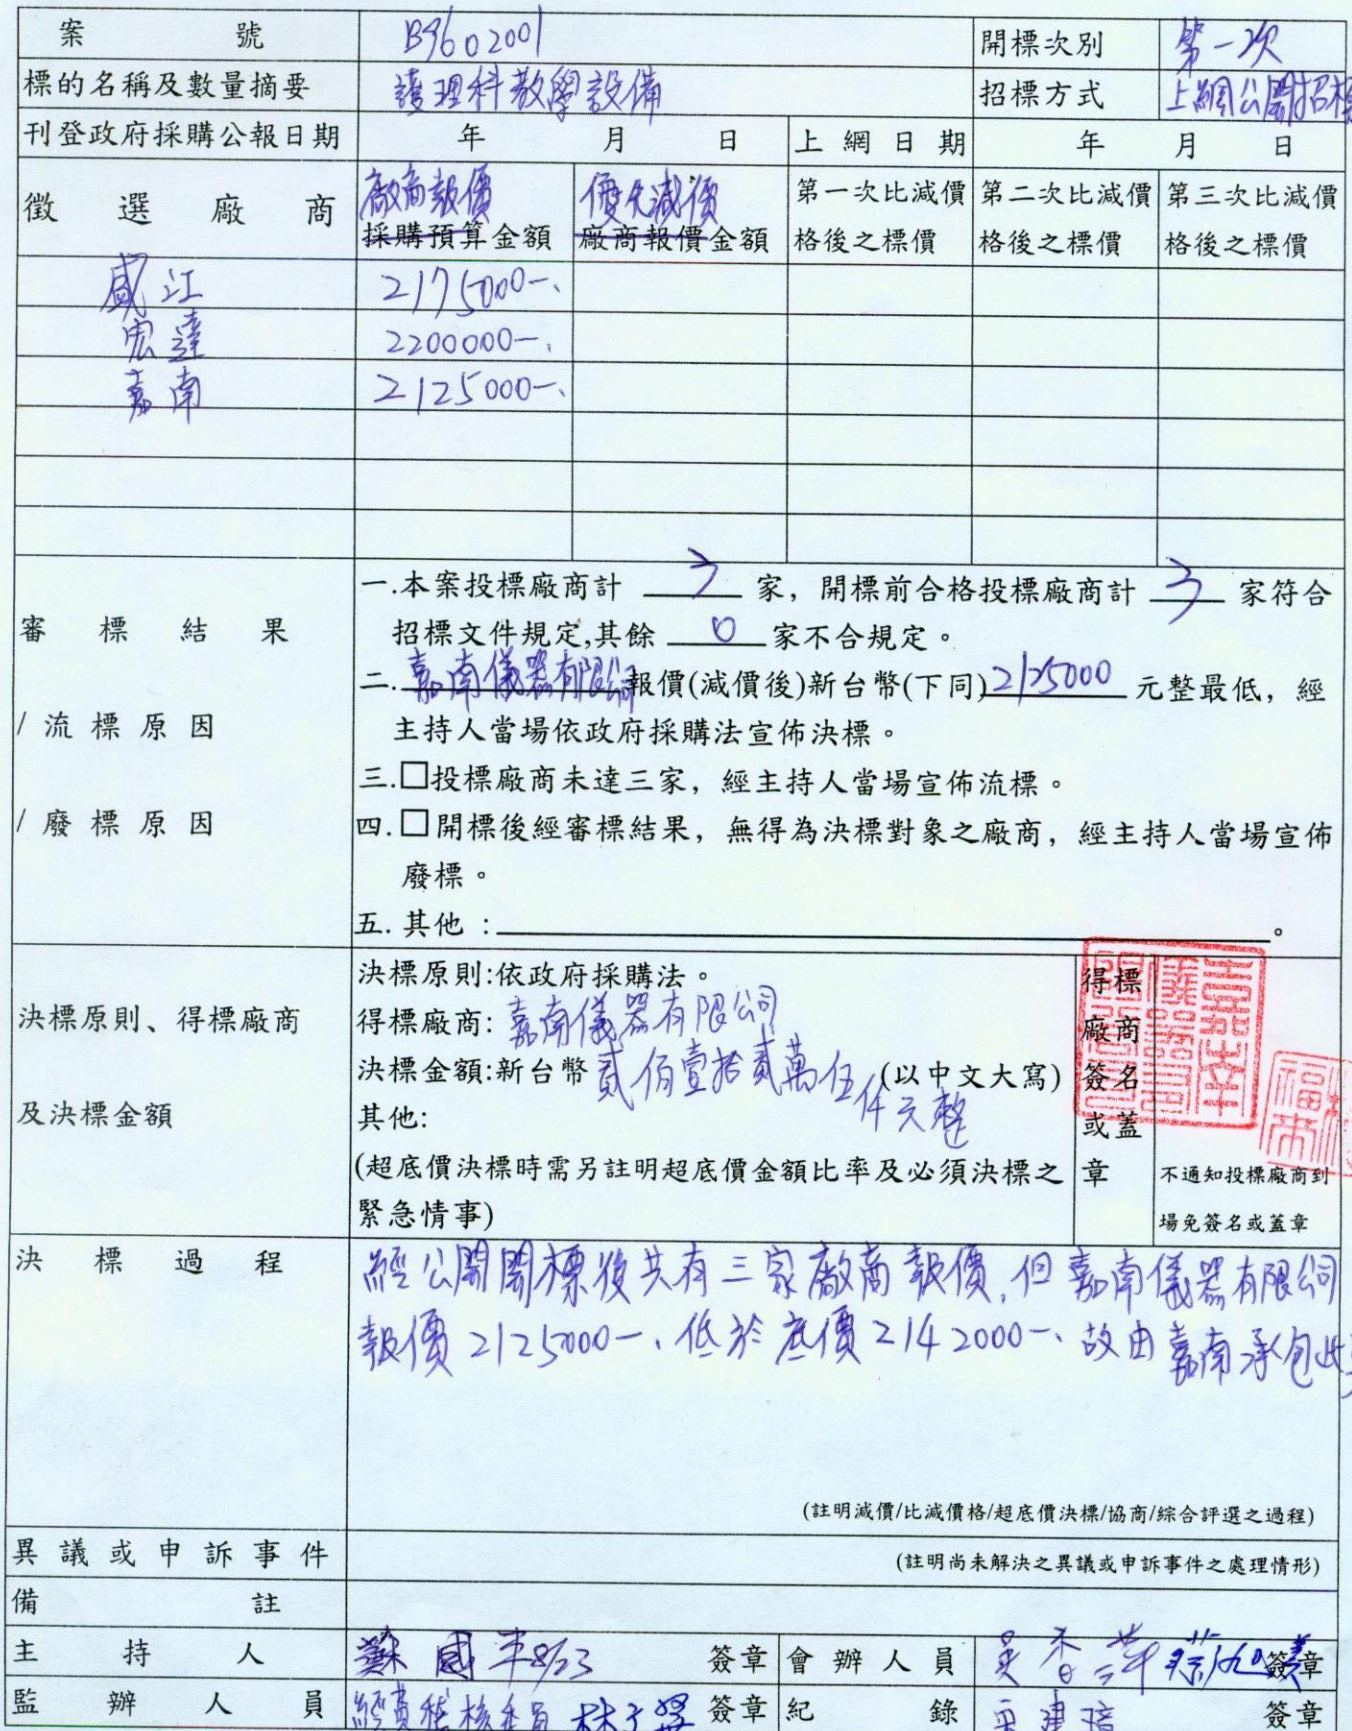 案 號 B9602001 開標次別 第一次
標的名稱及數量摘要 護理科教學設備 招標方式 上網公開招標
刊登政府採購公報日期 年 月 日 上網日期 年 月 日
徵選廠商 廠商報價 優先減價 第一次比減價 第二次比減價 第三次比減價
採購預算金額 廠商報價金額 格後之標價 格後之標價 格後之標價
威江 2175000-.
宏達 2200000-.
嘉南 2125000-.
審標結果
/流標原因
/廢標原因
一.本案投標廠商計 3 家，開標前合格投標廠商計 3 家符合
招標文件規定,其餘 0 家不合規定。
二.嘉南儀器有限公司報價(減價後)新台幣(下同)2125000元整最低，經
主持人當場依政府採購法宣佈決標。
三.□投標廠商未達三家，經主持人當場宣佈流標。
四.□開標後經審標結果，無得為決標對象之廠商，經主持人當場宣佈
廢標。
五.其他：。
決標原則、得標廠商
及決標金額
決標原則:依政府採購法。
得標廠商:嘉南儀器有限公司
決標金額:新台幣貳佰壹拾貳萬伍仟元整(以中文大寫)
其他:
(超底價決標時需另註明超底價金額比率及必須決標之
緊急情事)
得標
廠商
簽名
或蓋
章
不通知投標廠商到
場免簽名或蓋章
決標過程
經公開開標後共有三家廠商報價,但嘉南儀器有限公司
報價2125000-、低於底價2142000-、故由嘉南承包此
(註明減價/比減價格/超底價決標/協商/綜合評選之過程)
異議或申訴事件 (註明尚未解決之異議或申訴事件之處理情形)
備註
主持人 蘇國 8/23 簽章 會辦人員 吳香 簽章
監辦人員 經費稽核委員 林 簽章 紀錄 建 簽章